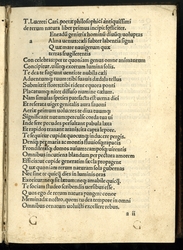 T. Lucreti Cari. poetæ philosophici antiquissimi
de rerum natura liber primus incipit fœliciter.
Eneadū genitrix hominū diuūq; uoluptas
Alma uenus: cæli subter labentia signa
Quæ mare nauigerum quæ
terras frugiferentis
Concelebras: per te quoniam genus omne animantum
Concipitur, uisitq; exortum lumina solis.
Te dea te fugiunt uenti: te nubila cæli
Aduentumq; tuum: tibi suaues dædala tellus
Submittit flores: tibi rident æquora ponti
Placatumq; nitet diffuso lumine cælum
Nam simul ac species patefacta est uerna diei
Et reserata uiget genitalis aura fauoni
Aeriæ primum uolucres te diua tuumq;
Significant initum perculsæ corda tua ui
Inde feræ pecudes persultant pabula læta
Et rapidos tranant amnis: ita capta lepore
Te sequitur cupide quocunq; inducere pergis.
Deniq; per maria ac montis fluuiosq; rapaces
Frondiferasq; domos auium camposq; uirentis
Omnibus incutiens blandum per pectora amorem
Efficis ut cupide generatim sæcla propagent
Quæ quoniam rerum naturam sola gubernas
Nec sine te quicq dias in luminis oras
Exoritur: neq; fit lætum neq; amabile quicq
Te sociam studeo scribendis uersibus esse.
Quos ego de rerum natura pangere conor
Memmiadæ nostro, quem tu dea tempore in omni
Omnibus ornatum uoluisti excellere rebus.
a ii